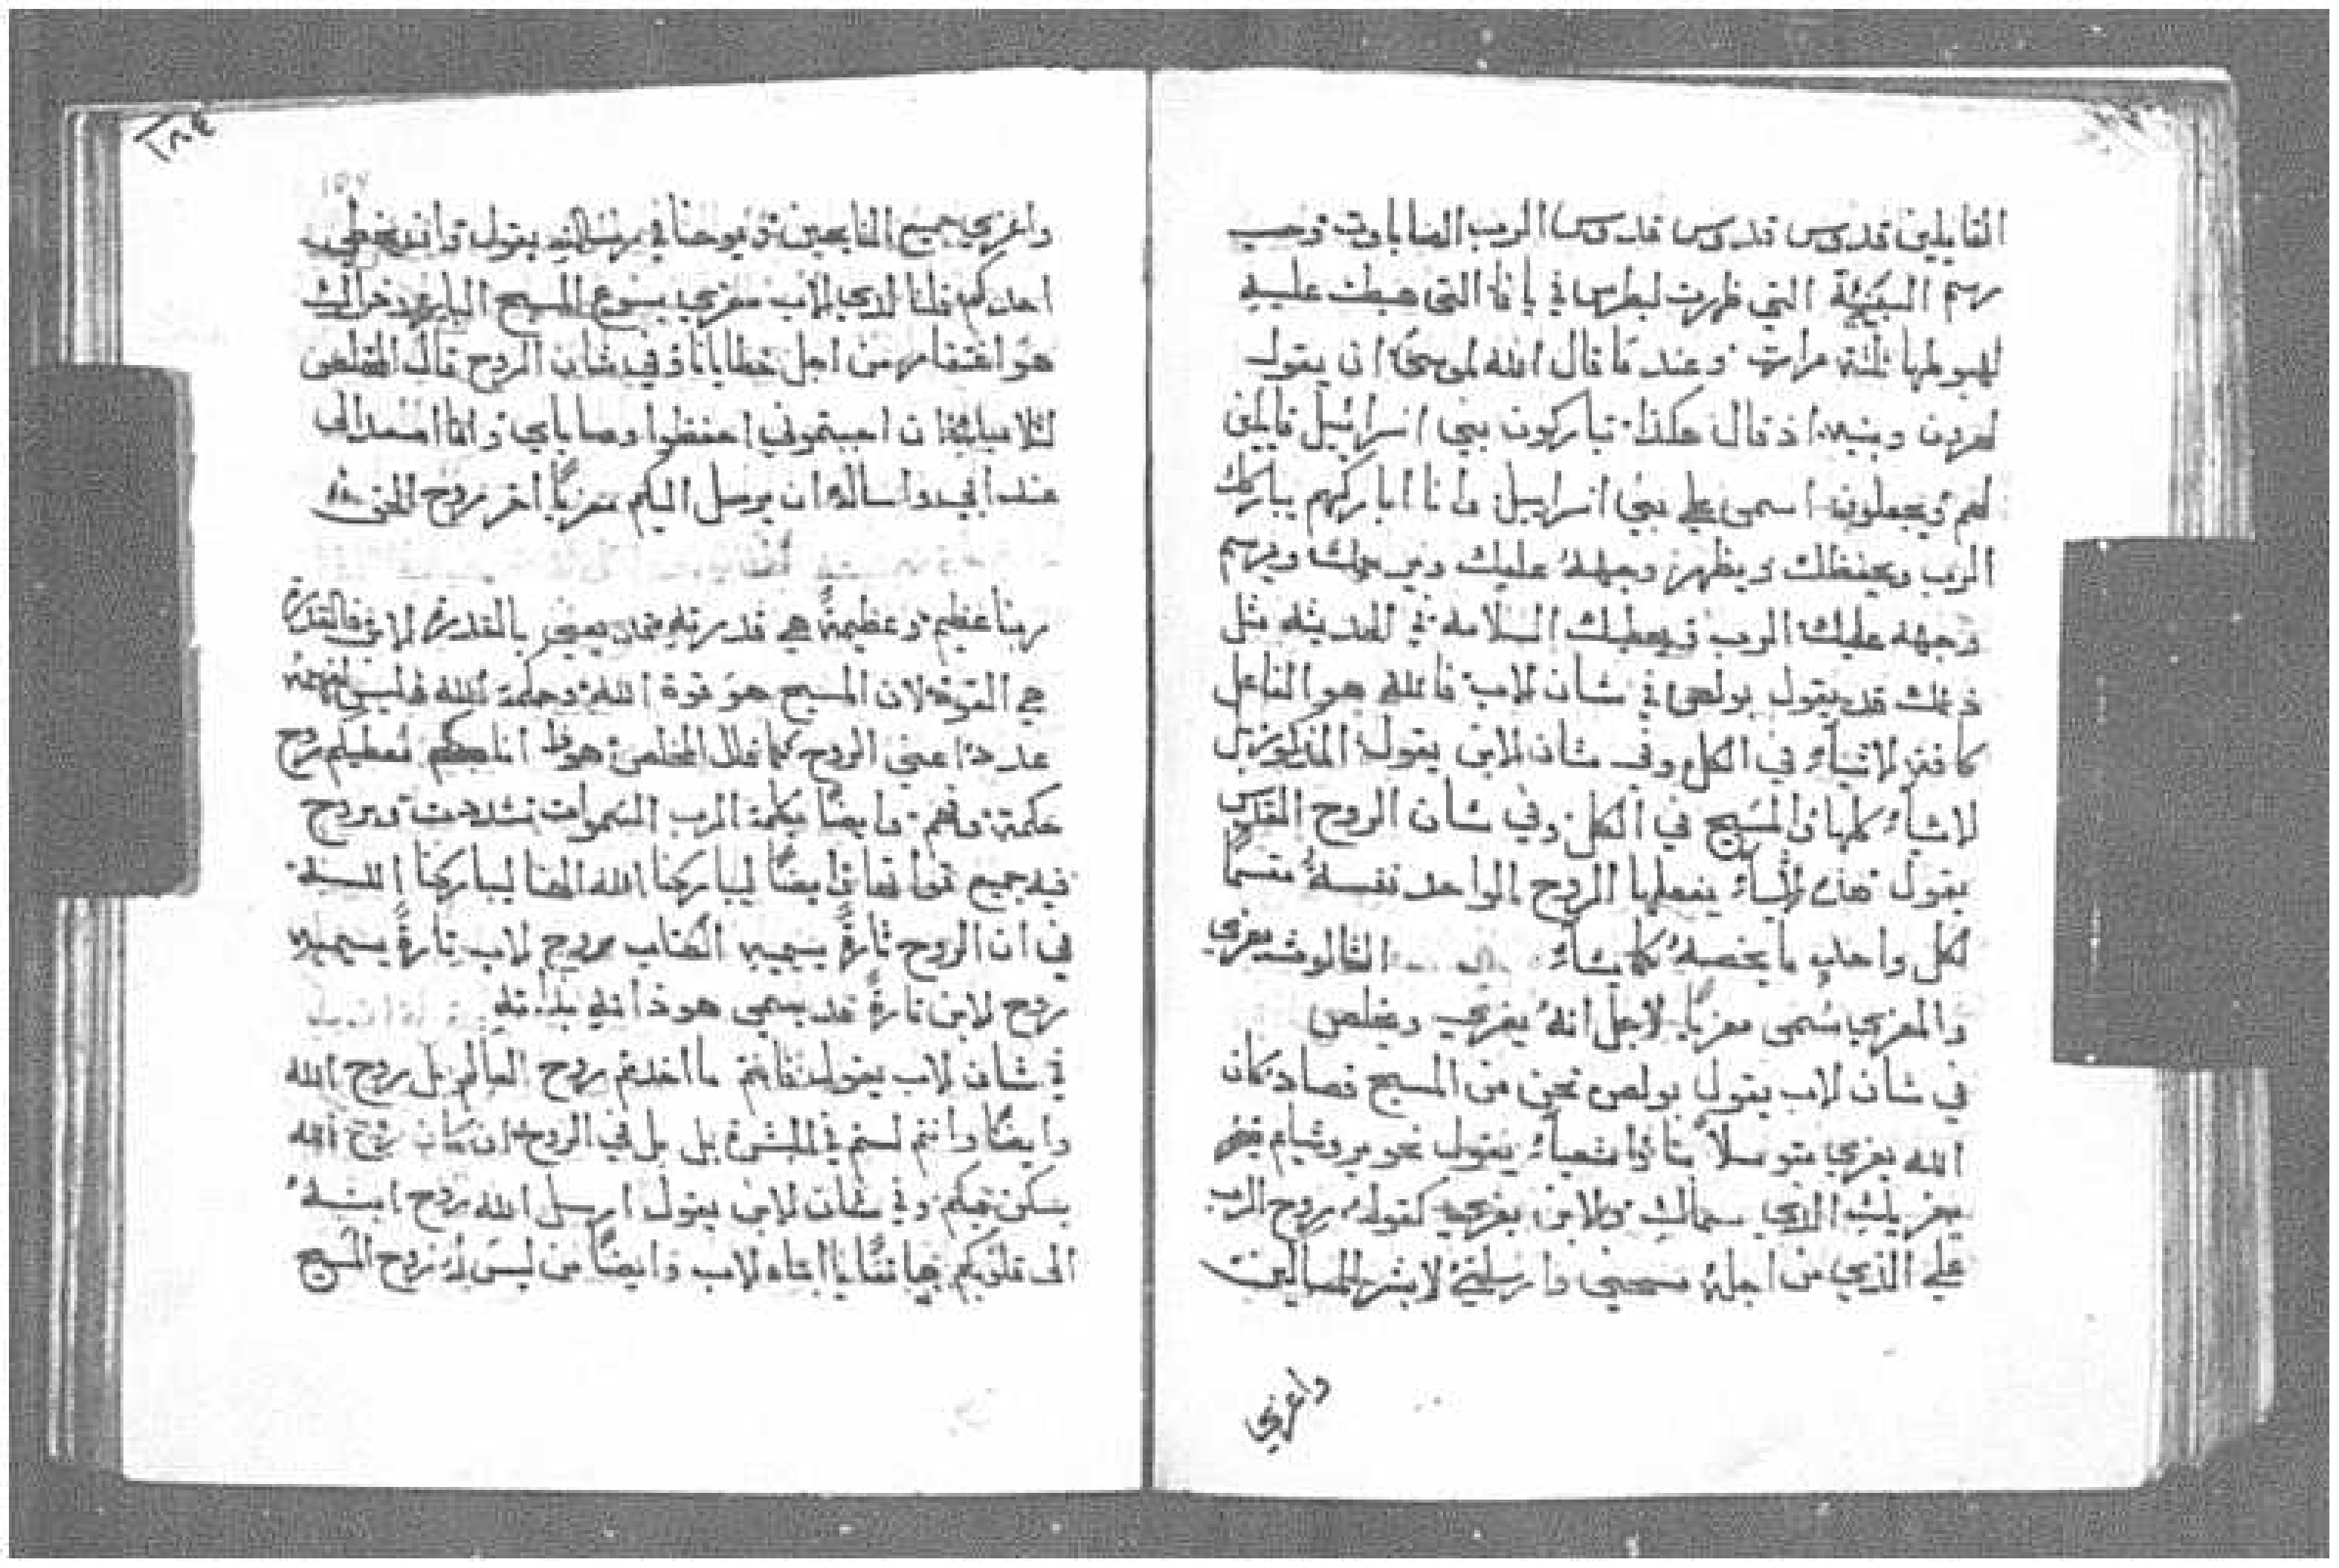 القايلين قدوس قدوس قدوس الرب الصاباوت وحسب
رسم السبنية التي ظهرت لبطرس في يافا التي هبطت عليه
لهبوطها ثلثة مرات وعند ما قال الله لموسى ان يقول
لهرون وبنيه اذ قال هكذا تباركون بني اسرائيل قايلين
لهم ويجعلون اسمي على بني اسراييل وانا اباركهم يباركك
الرب ويحفظك ويظهر وجهه عليك ويرحمك ويرسم
وجهه عليك الرب ويعطيك السلامه في المدينه مثل
ذلك قد يقول بولص في شان الاب فالله هو الفاعل
كافة الاشياء في الكل وفي شان الابن يقول المذكور بل
الاشياء كلها والمسيح في الكل وفي شان الروح القدس
يقول هذه الاشياء يفعلها الروح الواحد نفسه مقسما
لكل واحد ما يخصه كما يشاء الثالوث يعزي
والمعزي سمى معزيا لاجل انه يعزي ويخلص
في شان الاب يقول بولص نحن من المسيح فصاد كان
الله يعزي متوسلا بنا واشعياء يقول نحو يروشليم
يعزيك الذي سماك والابن يعزي كقوله روح الرب
علي الذي من اجله مسحني وارسلني لابشر المساكين
واعزي
١٨٤
واعزي جميع النايحين ويوحنا في رسالته يقول وان يخطي
احدكم فلنا لدى الاب معزي يسوع المسيح البار وذالك
هو اغتفار من اجل خطايانا وفي شان الروح قال المخلص
لتلاميذه ان احببتموني احفظوا وصاياي وانا اصعد الى
عند ابي واساله ان يرسل اليكم معزيا اخر روح الحق
ربنا عظيم وعظيمة هي قدرته بالقدرة الابن فالقدرة
هي القوة لان المسيح هو قوة الله وحكمة الله فليس لفهمه
عدد اعني الروح كما قال المخلص هوذا انا معكم نعطيكم روح
حكمة وفهم وايضا بكلمة الرب السموات تشددت وبروح
فيه جميع قواتها وايضا ليباركنا الله الهنا ليباركنا الله
في ان الروح تارة يسميه الكتاب روح الاب تارة يسميه
روح الابن تارة قد يسمى هو ذاته بذاته
في شان الاب يقول فانتم ما اخذتم روح العالم بل روح الله
وايضا وانتم لستم في البشرة بل بل في الروح ان كان روح الله
يسكن فيكم وفي شان الابن يقول ارسل الله روح ابنه
الى قلوبكم هاتفا يا ابتاه الاب وايضا من ليس له روح المسيح